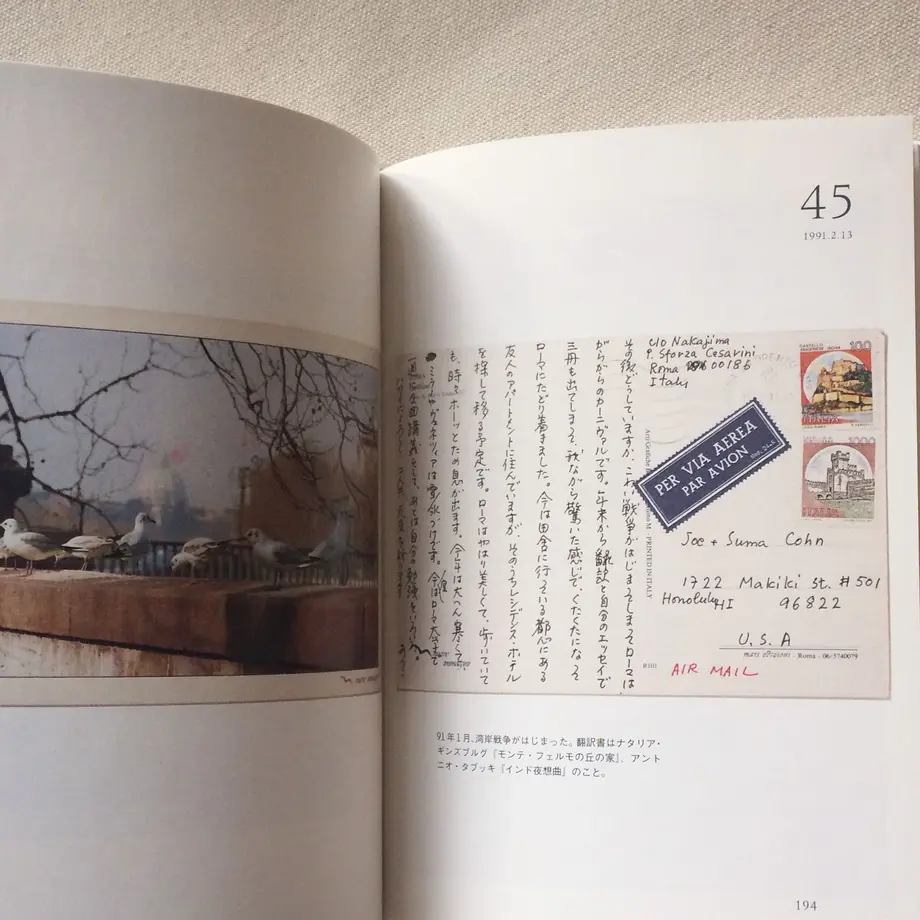 45
1991.2.13
c/o Nakajima
P. Sforza Cesarini
Roma 00186
Italy
CASTELLO
100
ITALIA
1000
ITALIA
PER VIA AEREA
PAR AVION
その後どうしていますか、こわい戦争がはじまってしまってローマは
がらがらのカーニヴァルです。年末から翻訳と自分のエッセイで
三冊も出てしまって、我ながら驚いた感じで、くたくたになって
ローマにたどり着きました。今は田舎に行っている都心にある
友人のアパートメントに住んでいますが、そのうちレシデンス・ホテル
を探して移る予定です。ローマはやはり美しくて、歩いていて
も、時々ホーッとため息が出ます。今年は大へん寒くて、
ミラノやヴェネツィアは つづきです。今はローマ大
回講義をして、あとは自分の勉強をいろいろ。
PRINTED IN ITALY
Joe + Suma Cohn
1722 Makiki St. #501
Honolulu HI 96822
U.S.A
- Roma - 06/5740079
AIR MAIL
91年1月、湾岸戦争がはじまった。翻訳書はナタリア・
ギンズブルグ『モンテ・フェルモの丘の家』、アント
ニオ・タブッキ『インド夜想曲』のこと。
194